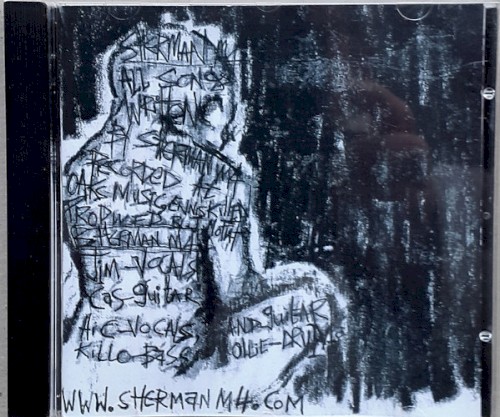 SHERMAN M4
ALL SONGS
WRITTEN
BY SHERMAN M4
RECORDED AT
OAK MUSICIANS KILLED
PRODUCED BY
SHERMAN M4
JIM-VOCALS
COS-guitAR
A:C-VOCALS, AND guitAR
KILLO-BASS OLLIE-DRUMS
WWW.SHERMANM4.COM